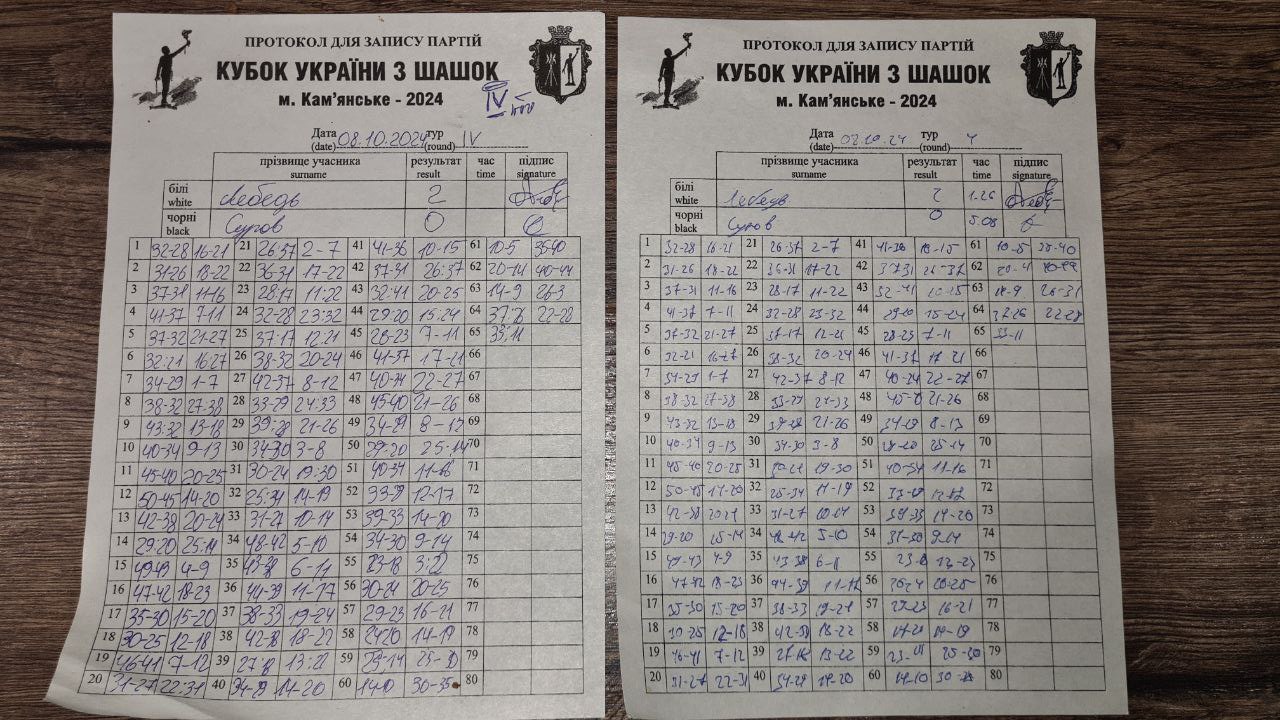 ПРОТОКОЛ ДЛЯ ЗАПИСУ ПАРТІЙ
КУБОК УКРАЇНИ З ШАШОК
м. Кам'янське - 2024
IV
Дата 08.10.2024 тур IV
(date) (round)
прізвище учасника результат час підпис
surname result time signature
білі Лебедь 2
white
чорні Суров 0
black
1 32-28 16-21 21 26:37 2-7 41 41-36 10-15 61 10-5 35-40
2 31-26 18-22 22 36-31 17-22 42 37-31 26:37 62 20-14 40-44
3 37-31 11-16 23 28:17 11:22 43 32:41 20-25 63 14-9
4 41-37 7-11 24 32-28 23:32 44 29-20 15:24 64 22-28
5 37-32 21-27 25 37:17 12:21 45 28-23 7-11 65
6 32:21 16:27 26 38-32 20-24 46 41-37 17-21 66
7 34-29 1-7 27 42-37 8-12 47 40-34 22-27 67
8 38-32 27-38 28 33-29 24:33 48 45-40 21-26 68
9 43:32 13-18 29 39:28 21-26 49 34-29 8-13 69
10 40-34 9-13 30 34-30 3-8 50 29-20 25:14 70
11 45-40 20-25 31 30-24 19:30 51 40-34 11-16 71
12 50-45 14-20 32 25:34 14-19 52 33-29 12-17 72
13 42-38 20-24 33 31-27 10-14 53 39-33 14-20 73
14 29:20 25:14 34 48-42 5-10 54 34-30 9-14 74
15 4-9 35 43-38 6-11 55 23-18 75
16 47-42 18-23 36 44-39 11-17 56 30-24 20-25 76
17 35-30 15-20 37 38-33 19-24 57 29-23 16-21 77
18 30-25 12-18 38 42-38 18-22 58 14-19 78
19 46-41 7-12 39 27:18 13:22 59 79
20 31-27 22:31 40 34-29 14-20 60 30-35 80
ПРОТОКОЛ ДЛЯ ЗАПИСУ ПАРТІЙ
КУБОК УКРАЇНИ З ШАШОК
м. Кам'янське - 2024
Дата тур 4
(date) (round)
прізвище учасника результат час підпис
surname result time signature
білі Лебедь 2 1-26
white
чорні Суров 0 5.08
black
1 32-28 16-21 21 26-37 2-7 41 41-36 10-15 61 10-5 35-40
2 31-26 18-22 22 36-31 17-22 42 37-31 26-37 62
3 37-31 11-16 23 28-17 11-22 43 32-41 63 14-9 26-31
4 41-37 7-11 24 32-28 23-32 44 29-20 15-24 64 37-26 22-28
5 37-32 21-27 25 37-17 12-21 45 28-23 7-11 65
6 32-21 16-27 26 38-32 20-24 46 41-37 17-21 66
7 34-29 1-7 27 42-37 8-12 47 40-34 22-27 67
8 38-32 27-38 28 33-29 24-33 48 21-26 68
9 43-32 13-18 29 39-28 21-26 49 34-29 8-13 69
10 40-34 9-13 30 34-30 3-8 50 29-20 25-14 70
11 45-40 20-25 31 19-30 51 40-34 11-16 71
12 50-45 14-20 32 25-34 14-19 52 33-29 12-17 72
13 42-38 33 31-27 10-14 53 39-33 14-20 73
14 29-20 25-14 34 5-10 54 9-14 74
15 4-9 35 43-38 55 75
16 47-42 18-23 36 44-39 11-17 56 20-25 76
17 35-30 15-20 37 38-33 19-24 57 29-23 16-21 77
18 30-25 12-18 38 42-38 18-22 58 14-19 78
19 46-41 7-12 39 27-18 13-22 59 25-30 79
20 31-27 22-31 40 34-29 14-20 60 14-10 80